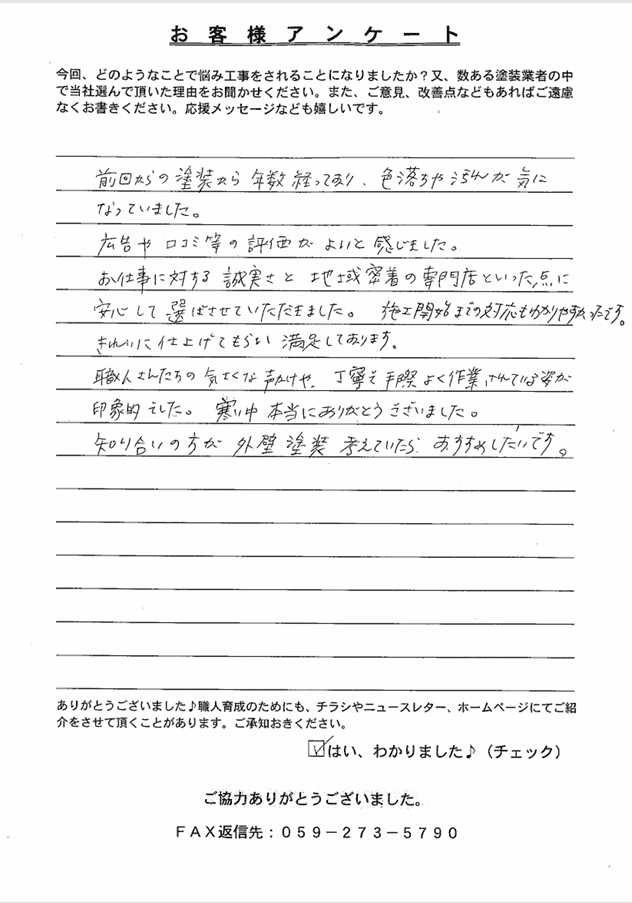 お客様アンケート
今回、どのようなことで悩み工事をされることになりましたか？又、数ある塗装業者の中
で当社選んで頂いた理由をお聞かせください。また、ご意見、改善点などもあればご遠慮
なくお書きください。応援メッセージなども嬉しいです。
前回からの塗装から年数経っており、色落ちや汚れが気に
なっていました。
広告や口コミ等の評価がよいと感じました。
お仕事に対する誠実さと地域密着の専門店といった点に
安心して選ばさせていただきました。施工開始までの対応もわかりやすかったです。
きれいに仕上げてもらい満足しております。
職人さんたちの気さくな声かけや、丁寧で手際よく作業されている姿が
印象的でした。寒い中本当にありがとうございました。
知り合いの方が外壁塗装考えていたらおすすめしたいです。
ありがとうございました♪職人育成のためにも、チラシやニュースレター、ホームページにてご紹
介をさせて頂くことがあります。ご承知おきください。
☑はい、わかりました♪（チェック）
ご協力ありがとうございました。
ＦＡＸ返信先：０５９－２７３－５７９０